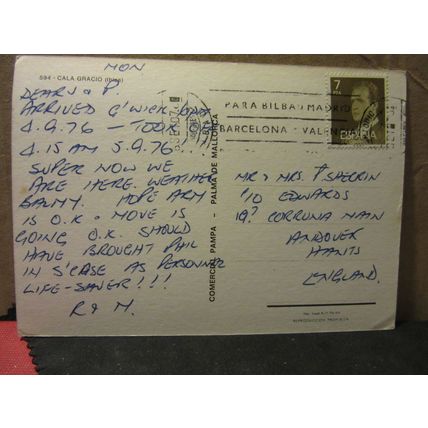 594 - CALA GRACIO (Ibiza)
MON
DEAR J & P.
ARRIVED G'WICK
4.9.76 - TOOK OFF
4.15 AM 5.9.76...
SUPER NOW WE
ARE HERE. WEATHER
BALMY. HOPE ARM
IS O.K. & MOVE IS
GOING O.K. SHOULD
HAVE BROUGHT PHIL
IN S'CASE AS PERSONNEL
LIFE-SAVER!!!
R & M.
COMERCIAL PAMPA - PALMA DE MALLORCA
PARA BILBAO MADRID
BARCELONA VALENCIA
7
PTA
ESPAÑA
MR & MRS P SHERRIN
10 EDWARDS
19? CORRUNA MAIN
ANDOVER
HANTS
ENGLAND.
REPRODUCCION PROHIBIDA